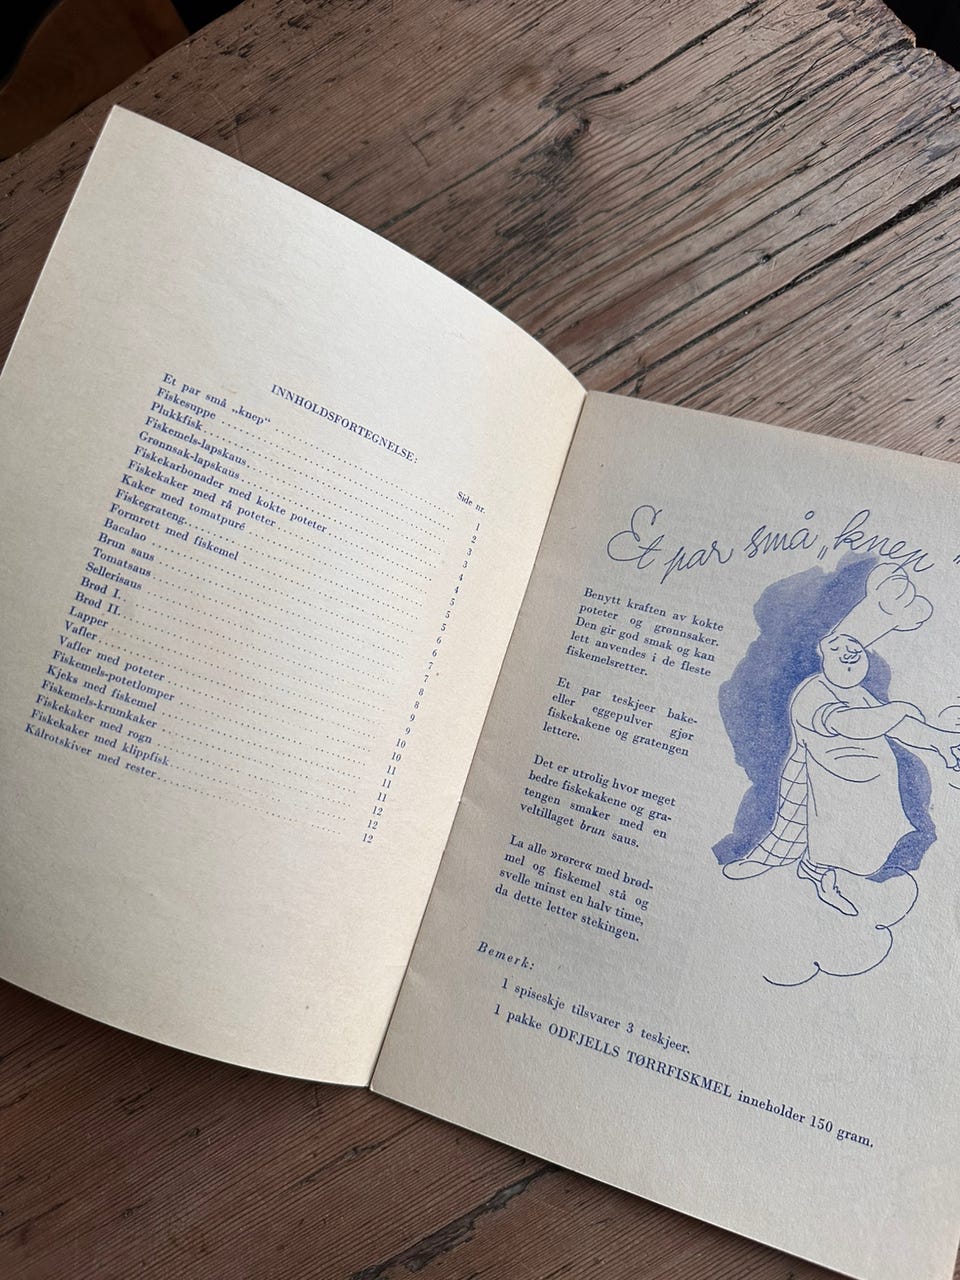 INNHOLDSFORTEGNELSE:
Side nr.
Et par små „knep“ 1
Fiskesuppe 2
Plukkfisk 3
Fiskemels-lapskaus 3
Grønnsak-lapskaus 4
Fiskekarbonader med kokte poteter 4
Fiskekaker med rå poteter 5
Kaker med tomatpuré 5
Fiskegrateng 5
Formrett med fiskemel 6
Bacalao 6
Brun saus 7
Tomatsaus 7
Sellerisaus 8
Brød I. 8
Brød II. 9
Lapper 9
Vafler 10
Vafler med poteter 10
Fiskemels-potetlomper 11
Kjeks med fiskemel 11
Fiskemels-krumkaker 11
Fiskekaker med rogn 12
Fiskekaker med klippfisk 12
Kålrotskiver med rester 12
Et par små „knep"
Benytt kraften av kokte
poteter og grønnsaker.
Den gir god smak og kan
lett anvendes i de fleste
fiskemelsretter.
Et par teskjeer bake-
eller eggepulver gjør
fiskekakene og gratengen
lettere.
Det er utrolig hvor meget
bedre fiskekakene og gra-
tengen smaker med en
veltillaget brun saus.
La alle »rører« med brød-
mel og fiskemel stå og
svelle minst en halv time,
da dette letter stekingen.
Bemerk:
1 spiseskje tilsvarer 3 teskjeer.
1 pakke ODFJELLS TØRRFISKMEL inneholder 150 gram.